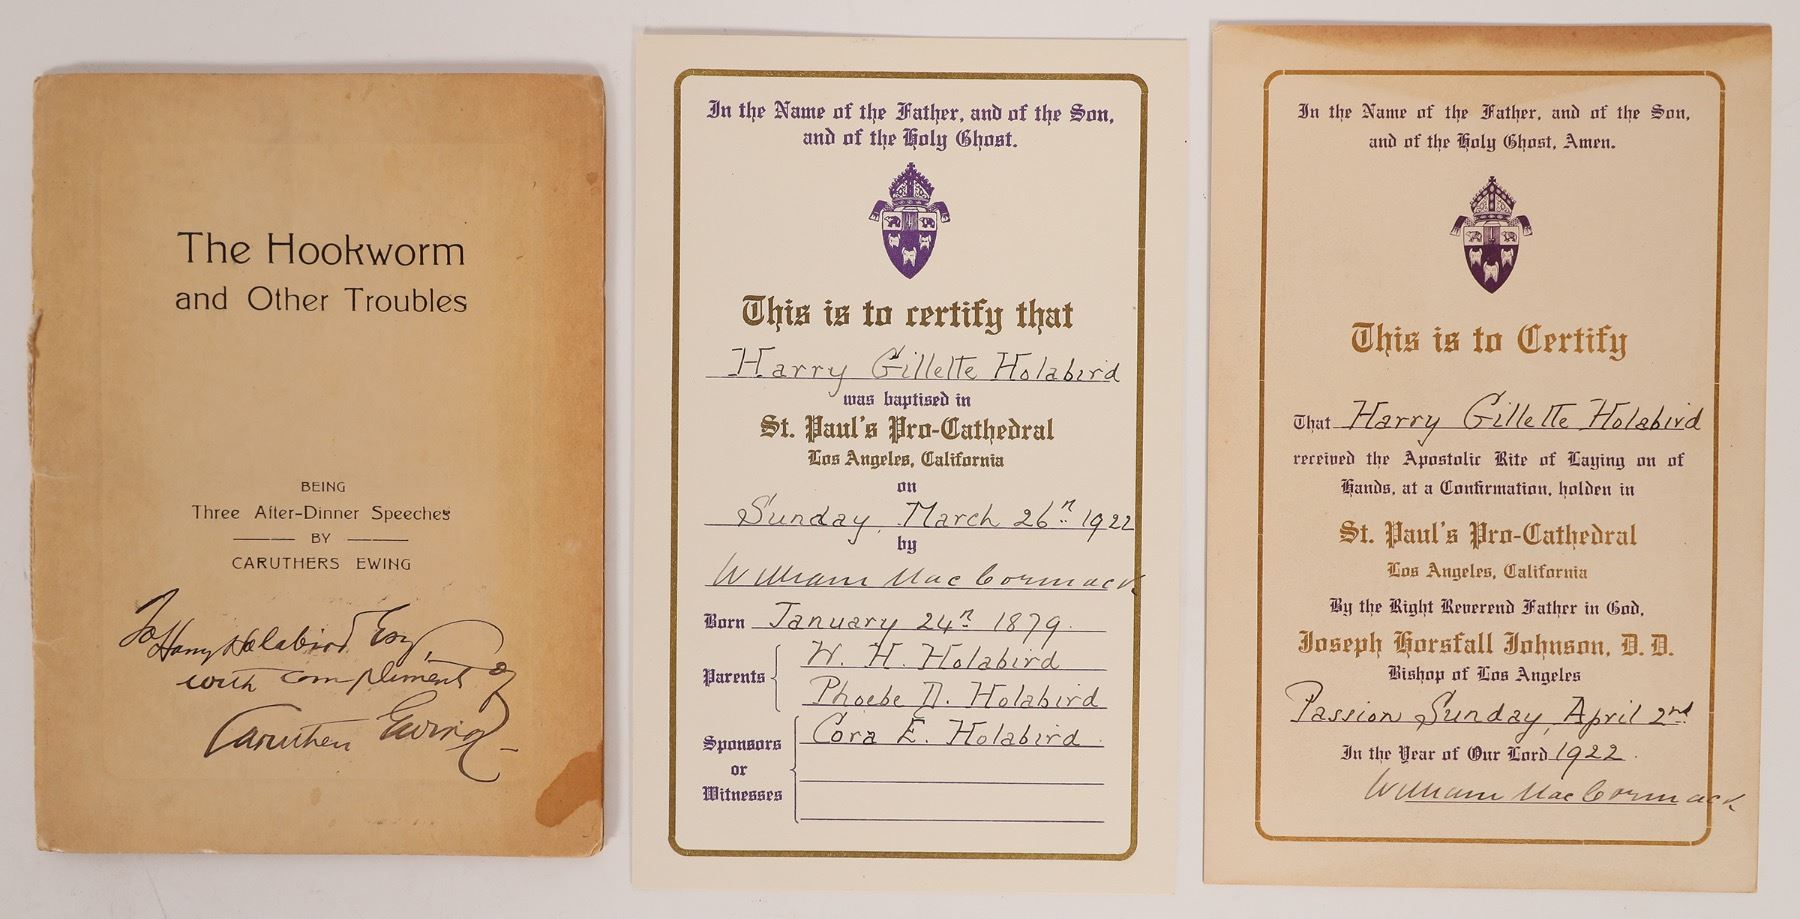 The Hookworm
and Other Troubles
BEING
Three After-Dinner Speeches
BY
CARUTHERS EWING
To Harry Holabird Esq,
with compliments of
Caruthers Ewing
In the Name of the Father, and of the Son,
and of the Holy Ghost.
This is to certify that
Harry Gillette Holabird
was baptised in
St. Paul's Pro-Cathedral
Los Angeles, California
on
Sunday, March 26th 1922
by
William MacCormack
Born January 24th 1879.
Parents
W. H. Holabird
Phoebe D. Holabird
Sponsors
or
Witnesses
Cora E. Holabird
In the Name of the Father, and of the Son,
and of the Holy Ghost, Amen.
This is to Certify
That Harry Gillette Holabird
received the Apostolic Rite of Laying on of
Hands, at a Confirmation, holden in
St. Paul's Pro-Cathedral
Los Angeles, California
By the Right Reverend Father in God,
Joseph Horsfall Johnson, D. D.
Bishop of Los Angeles
Passion Sunday, April 2nd
In the Year of Our Lord 1922.
William MacCormack